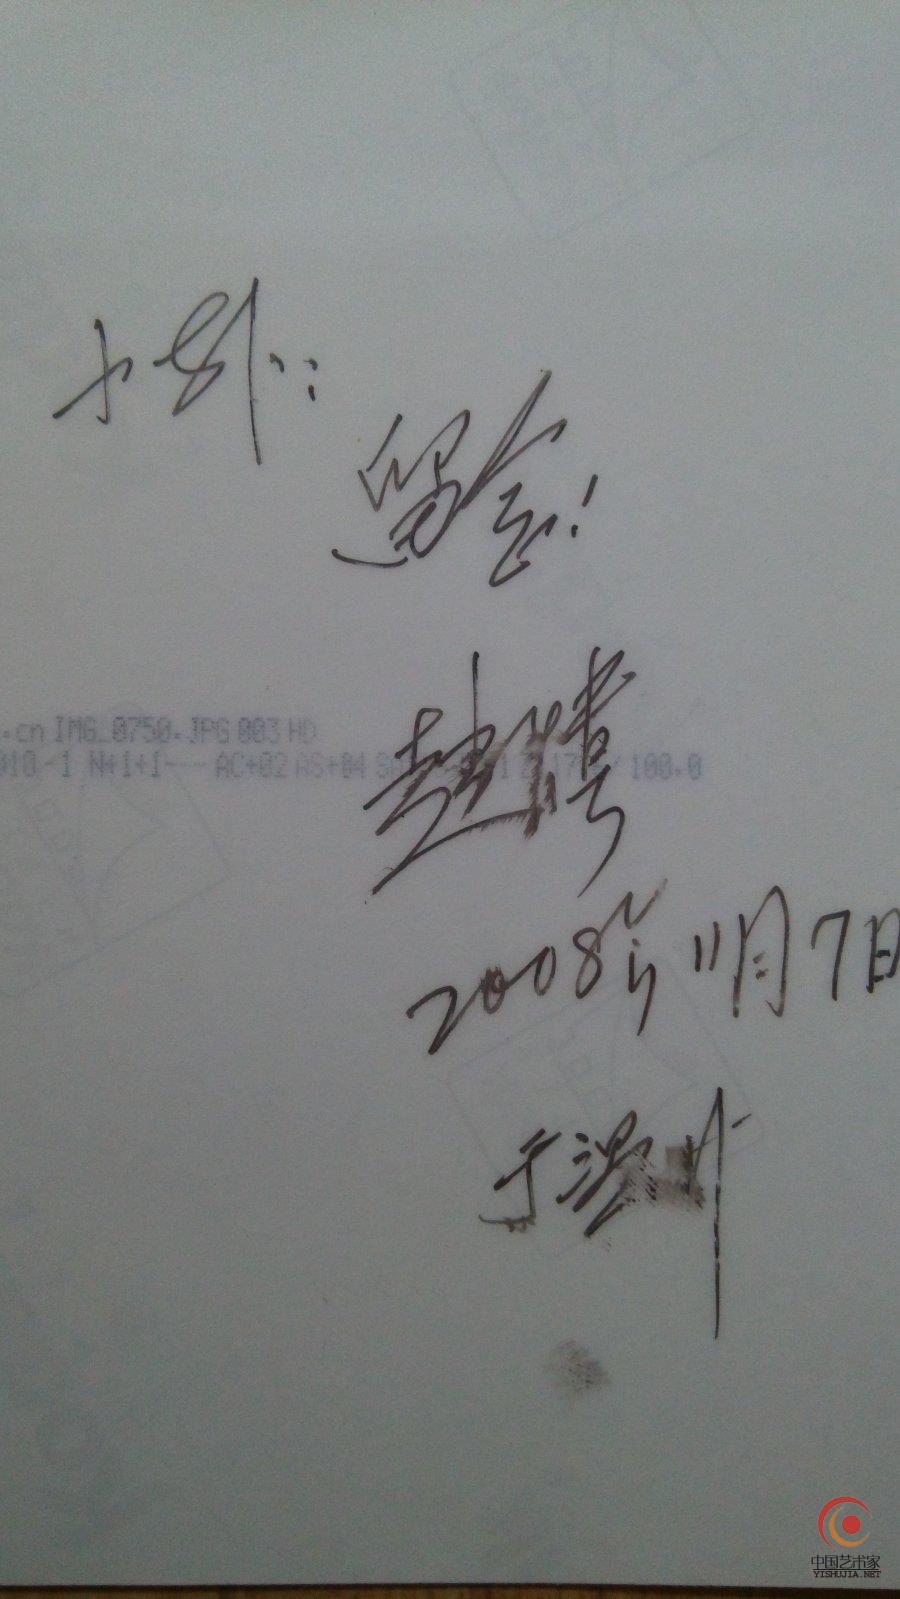 小
留念!
赵
2008年11月7日
于温州
.cn IMG_0750.JPG 003 HD
-1 N+1+1--- AC+02 AS+04 100.0
中国艺术家
YISHUJIA.NET